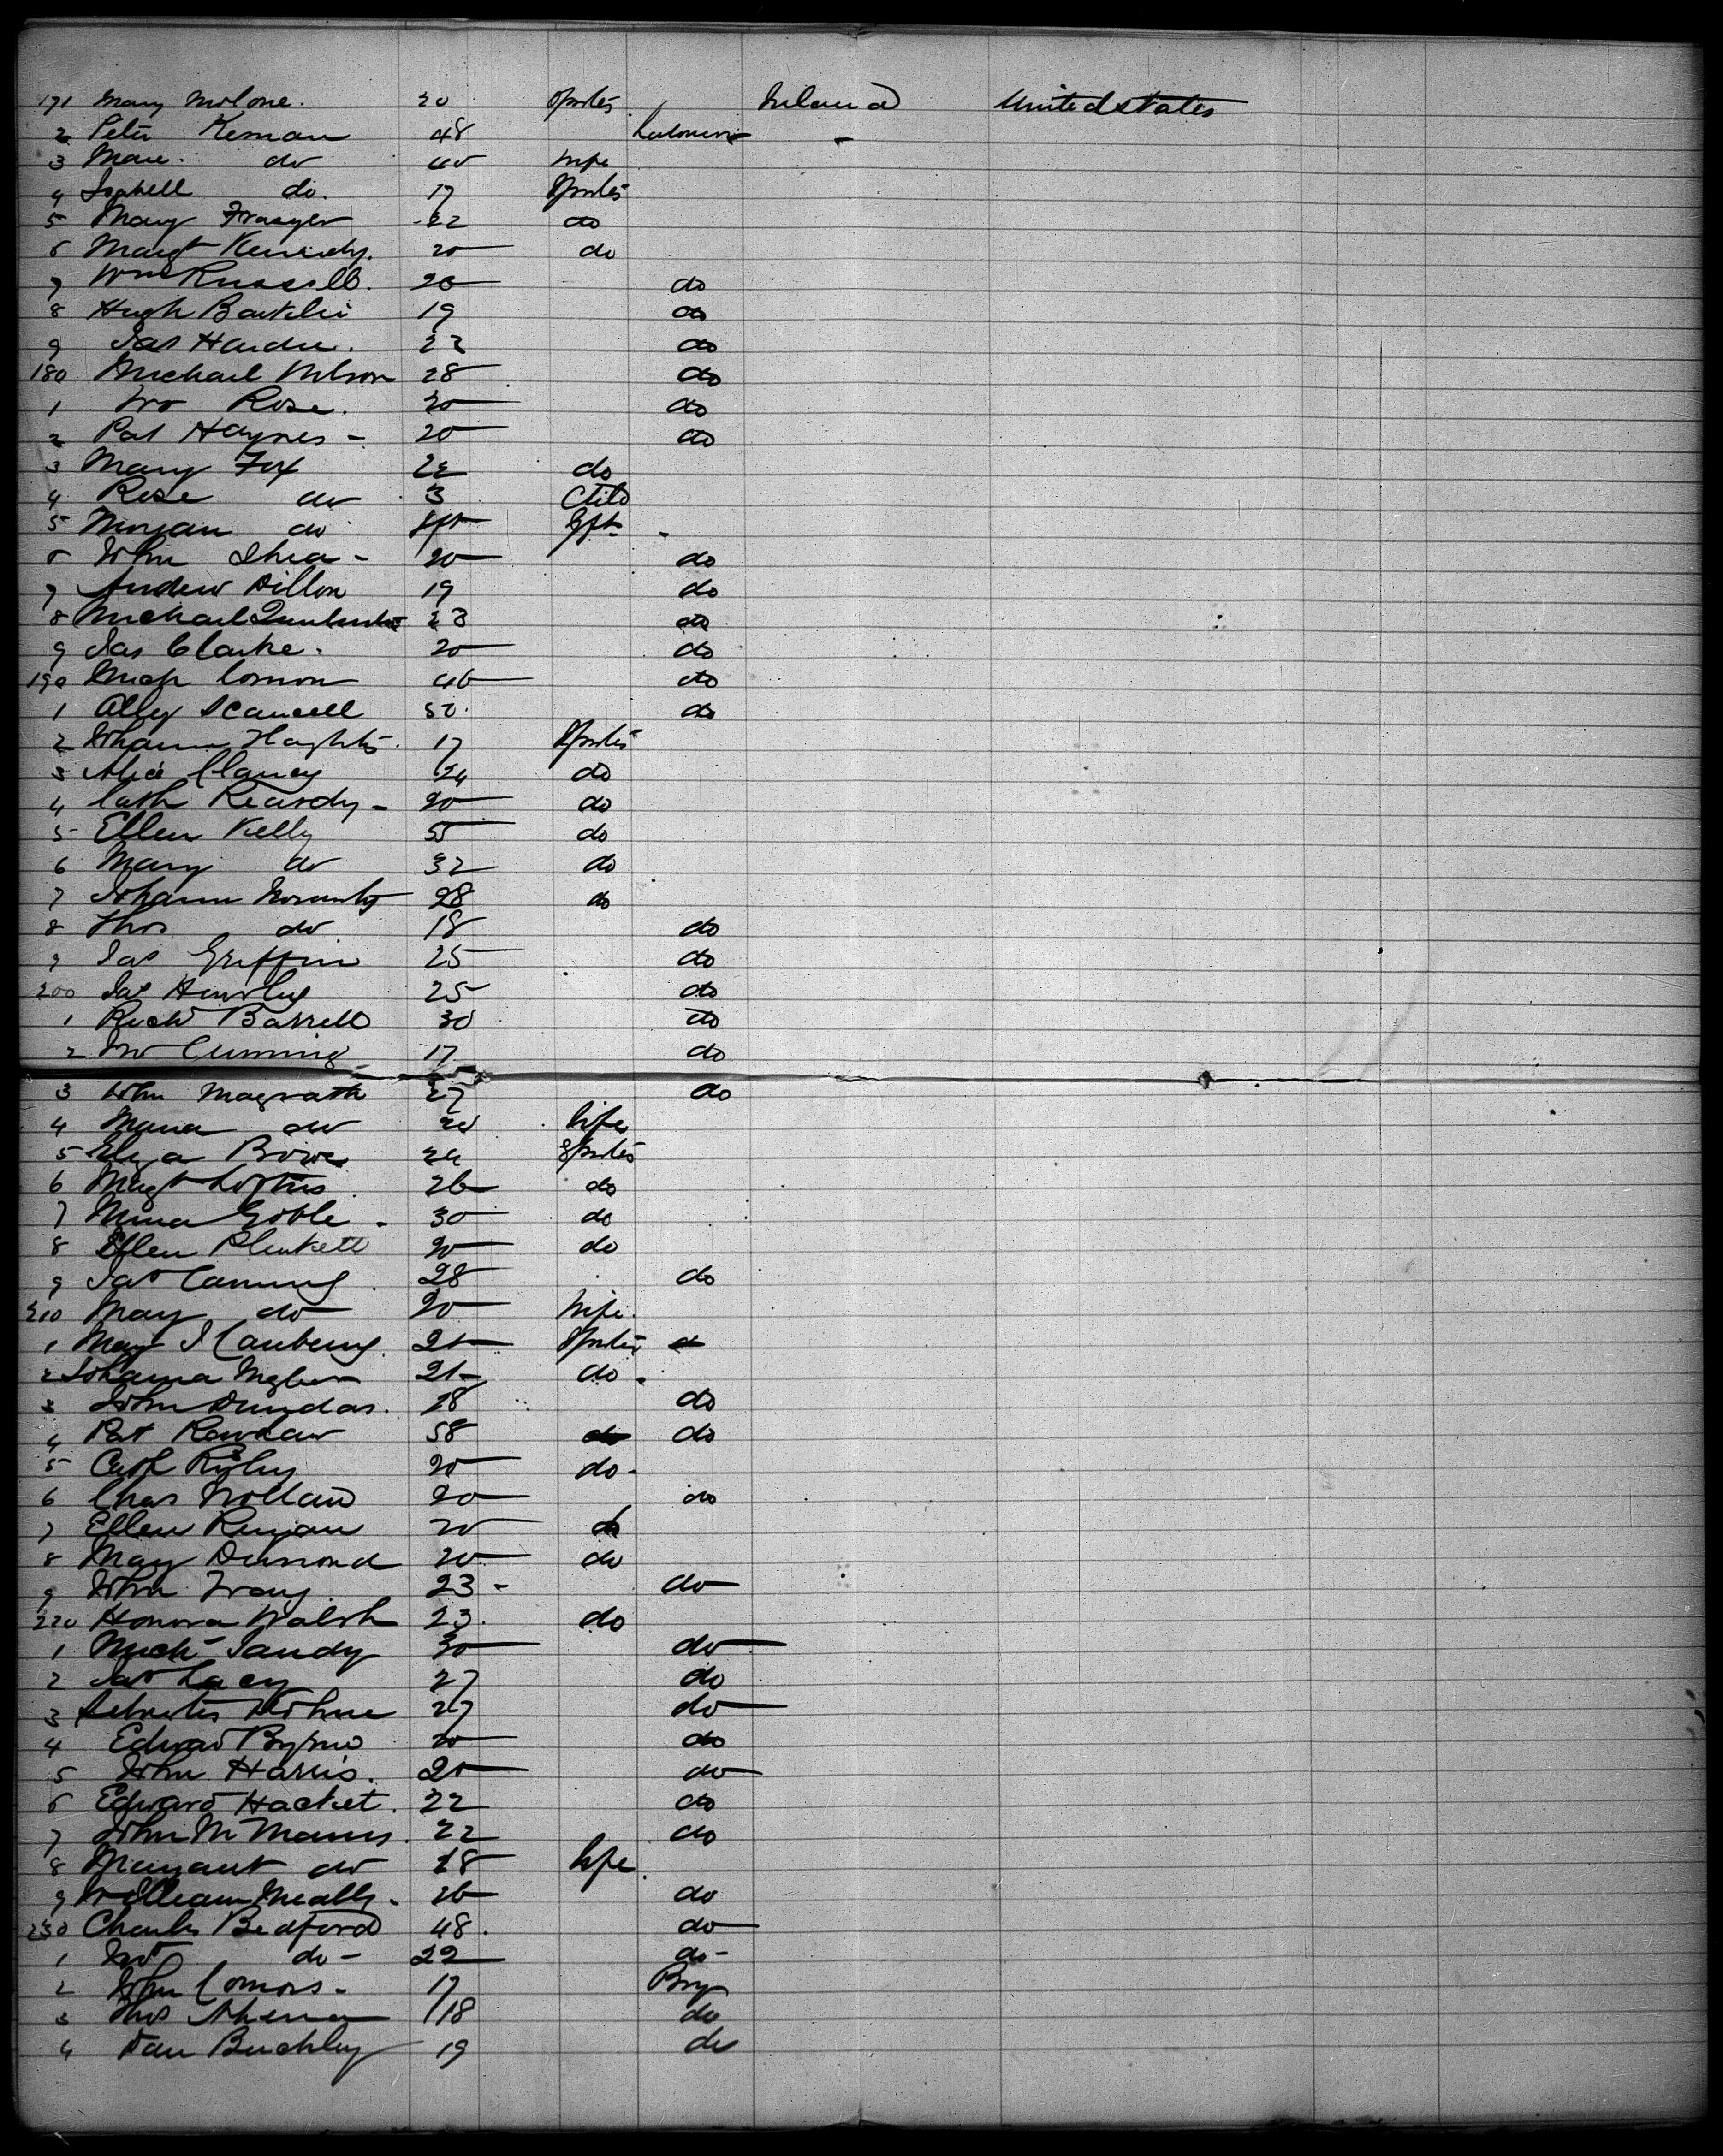 171 Mary Malone. 20 Spinster Ireland United States
2 Peter Kernan 48 Labourer -
3 Mary do 40 Wife
4 Isabell do. 17 Spinster
5 Mary Frawley 22 do
6 Margt Kennedy. 20 do
7 Wm Russell. 20 do
8 Hugh 19 do
9 Jas 22 do
180 Michael Nelson 28 do
1 Jno Rose. 20 do
2 Pat Haynes - 20 do
3 Mary Fox 22 do
4 Rose do 3 Child
5 Morgan do
6 John Shea - 20 do
7 Andrew Dillon 19 do
8 Michael 23 do
9 Jas Clarke. 20 do
190 Mich Connor do
1 Alley Scannell 50. do
2 Johanna 17 Spinster
3 Alice Clancy 24 do
4 Cath Reardy - 20 do
5 Ellen Kelly 55 do
6 Mary do 32 do
7 Johanna 28 do
8 Thos do 18 do
9 Jas Griffin 25 do
200 Jas 25 do
1 Richd Barrett 30 do
2 Jno Cumming 17 do
3 John Magrath 27 do
4 Maria do 20 Wife
5 Eliza Bowe 24 Spinster
6 Magt Loftus 26 do
7 Mina Goble - 30 do
8 Ellen Plunkett 20 do
9 Jas Canning 28 do
210 Mary do 20 Wife.
1 Mary 21 Spinster
2 Johanna 21 do
3 John Dundas. 18 do
4 Pat 58 do
5 Cath Riley 20 do -
6 Chas Holland 20 do
7 Ellen 20 do
8 Mary Dumond 20 do
9 John 23 - do
220 Honora Walsh 23. do
1 Mich Landy 30 do
2 Jas Lacy 27 do
3 27 do
4 Edward Byrne 20 do
5 John Harris. 20 do
6 Edward Hacket. 22 do
7 John McManus. 22 do
8 Margaret do 18 Wife
9 William Meally - 26 do
230 Charles Bedford 48. do
1 Jno do - 22 do -
2 John Connors - 17 Boy
3 Thos Ahern 18 do
4 Dan Buckley 19 do